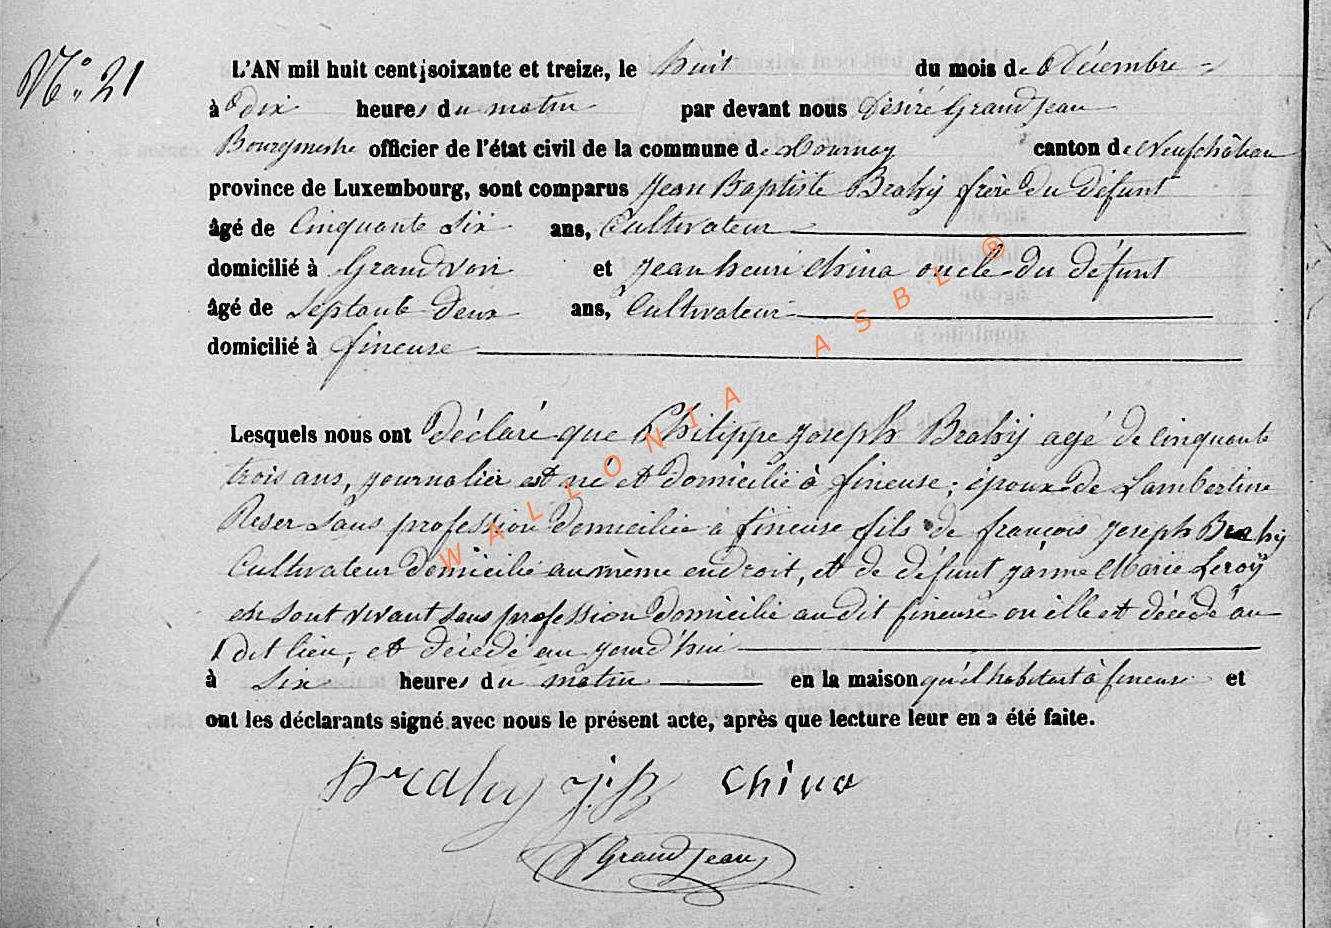 N.° 21
L'AN mil huit cent soixante et treize, le huit du mois de Décembre
à dix heures du matin par devant nous Désiré Grandjean
Bourgmestre officier de l'état civil de la commune de Tournay canton de Neufchâteau
province de Luxembourg, sont comparus Jean Baptiste Brahy frère du défunt
âgé de Cinquante six ans, Cultivateur
domicilié à Grandvoir et Jean henri China oncle du défunt
âgé de Septante deux ans, Cultivateur
domicilié à fineuse
Lesquels nous ont déclaré que Philippe Joseph Brahy agé de cinquante
trois ans, journalier est né et domicilié à fineuse; époux de Lambertine
Reser sans profession domiciliée à fineuse fils de françois Joseph Brahy
Cultivateur domicilié au même endroit, et de défunt Jänne Marie Leroÿ
en sont vivant sans profession domicilié au dit fineuse ou elle est décédé au
dit lieu, et décédé au jourd'hui
à six heures du matin en la maison qu'il habitait à fineuse et
ont les déclarants signé avec nous le présent acte, après que lecture leur en a été faite.
Brahy J.B China
D Grandjean
WALLONIA ASBL ®